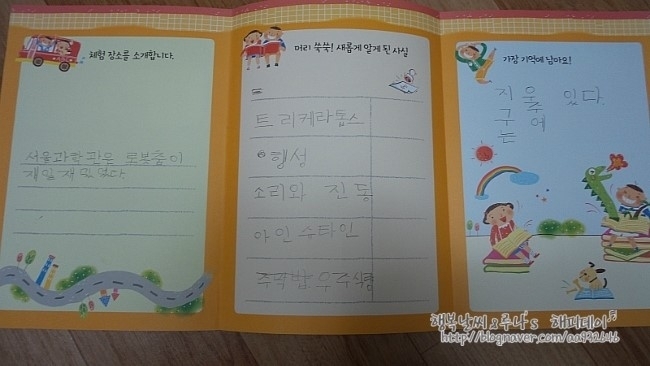 체험 장소를 소개합니다.
서울과학관은 로보춤이
재일 재 있었다.
머리 쏙쏙! 새롭게 알게 된 사실
트리케라톱스
행성
소리와 진동
아인슈타인
주먹밥 우주식량
가장 기억에 남아요!
지구는 우주에 있다
행복날씨 요루나's 해피데이
http://blog.naver.com/aa992646